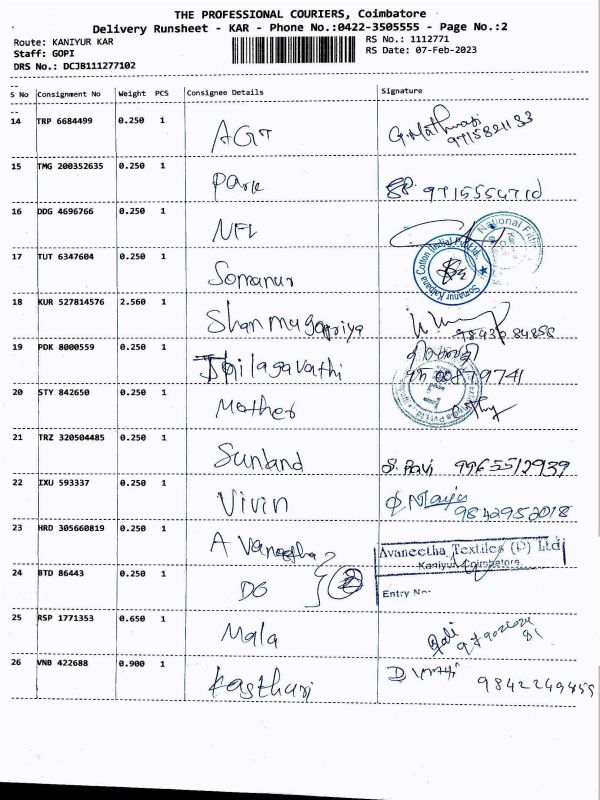 THE PROFESSIONAL COURIERS, Coimbatore
Delivery Runsheet - KAR - Phone No.:0422-3505555 - Page No.:2
Route: KANIYUR KAR
RS No.: 1112771
Staff: GOPI
RS Date: 07-Feb-2023
DRS No.: DCJB111277102
S No Consignment No Weight PCS Consignee Details Signature
14 TRP 6684499 0.250 1 AGT G. Mathuraj
9715821133
15 TMG 200352635 0.250 1 Park
16 DDG 4696766 0.250 1 NFL National
17 TUT 6347604 0.250 1 Somanur Somanur Kalpana Cotton (India) Pvt Ltd.
18 KUR 527814576 2.560 1 Shanmugapriya 98436 84858
19 PDK 8000559 0.250 1 Thilagavathi
20 STY 842650 0.250 1 Mother
21 TRZ 320504485 0.250 1 Sunland S. Ravi 9965512939
22 IXU 593337 0.250 1 Vivin 9842952018
23 HRD 305660819 0.250 1 A Vaneetha Avaneetha Textiles (P) Ltd
Kaniyur, Coimbatore.
24 BTD 86443 0.250 1 DO 2 Entry No.
25 RSP 1771353 0.650 1 Mala
26 VNB 422688 0.900 1 Kasthuri 9842249459